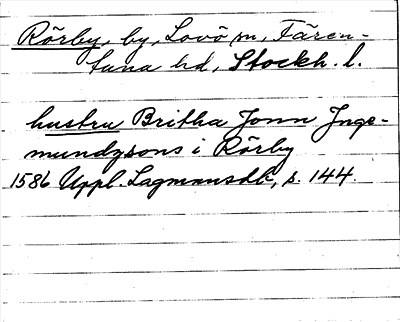 Rörby, by, Lovö sn, Fären-
tuna hd, Stockh. l.
hustru Britha Jonn Jnge-
mundzsons i Rörby
1586 Uppl. Lagmansdb, s. 144.